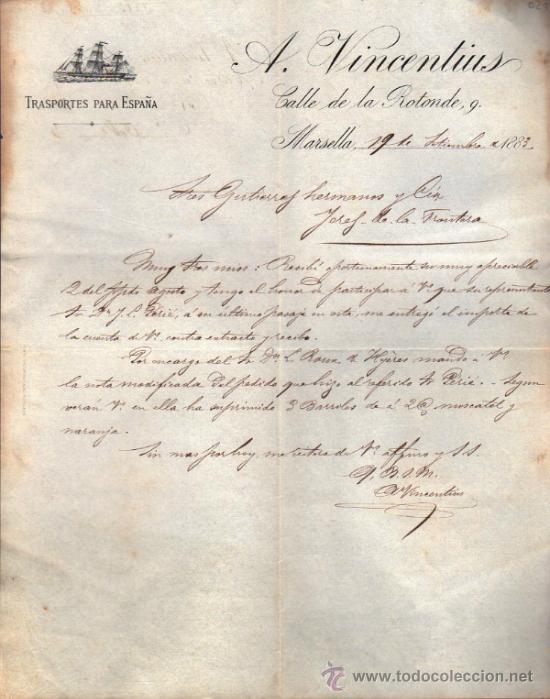 A. Vincentius
TRASPORTES PARA ESPAÑA
Calle de la Rotonde, 9.
Marsella, 19 de Setiembre de 1883.
Sres Gutierrez hermanos y Cía
Jerez de la Frontera
Muy Sres mios: Recibí oportunamente su muy apreciable
2 del ppdo Agosto y tengo el honor de participar á Vs. que su representante
Sr Dn J. L. Perié, á su ultimo pasaje en esta, me entregó el importe de
la cuenta de Vs. contra extracto y recibo.
Por encargo del Sr Dn L. Roux de Hyères mando á Vs
la nota modificada del pedido que hizo al referido Sr Perié. - Segun
verán Vs. en ella ha suprimido 3 Barroles de á 2 @ moscatel y
naranja.
Sin mas por hoy, me reitero de Vs. affmo y S.S.
Q. B. S. M.
A Vincentius
www.todocoleccion.net